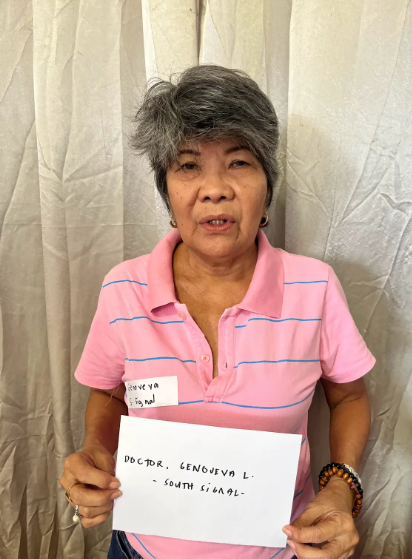 Genoveva
S. Signal
DOCTOR, GENOVEVA L.
- SOUTH SIGNAL -